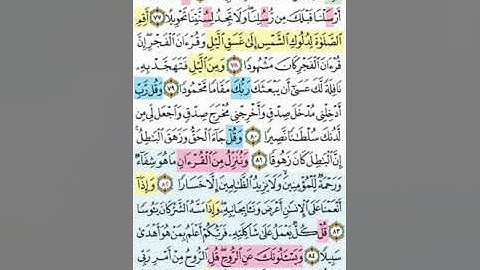 أَرْسَلْنَا قَبْلَكَ مِن رُّسُلِنَا وَلَا تَجِدُ لِسُنَّتِنَا تَحْوِيلًا ٧٧ أَقِمِ
الصَّلَوٰةَ لِدُلُوكِ الشَّمْسِ إِلَىٰ غَسَقِ الَّيْلِ وَقُرْءَانَ الْفَجْرِ إِنَّ
قُرْءَانَ الْفَجْرِ كَانَ مَشْهُودًا ٧٨ وَمِنَ الَّيْلِ فَتَهَجَّدْ بِهِ
نَافِلَةً لَّكَ عَسَىٰ أَن يَبْعَثَكَ رَبُّكَ مَقَامًا مَّحْمُودًا ٧٩ وَقُل رَّبِّ
أَدْخِلْنِي مُدْخَلَ صِدْقٍ وَأَخْرِجْنِي مُخْرَجَ صِدْقٍ وَاجْعَل لِّي مِن
لَّدُنكَ سُلْطَٰنًا نَّصِيرًا ٨٠ وَقُلْ جَاءَ الْحَقُّ وَزَهَقَ الْبَٰطِلُ
إِنَّ الْبَٰطِلَ كَانَ زَهُوقًا ٨١ وَنُنَزِّلُ مِنَ الْقُرْءَانِ مَا هُوَ شِفَاءٌ
وَرَحْمَةٌ لِّلْمُؤْمِنِينَ وَلَا يَزِيدُ الظَّٰلِمِينَ إِلَّا خَسَارًا ٨٢ وَإِذَا
أَنْعَمْنَا عَلَى الْإِنسَٰنِ أَعْرَضَ وَنَـَٔا بِجَانِبِهِ وَإِذَا مَسَّهُ الشَّرُّ كَانَ يَـُٔوسًا
٨٣ قُلْ كُلٌّ يَعْمَلُ عَلَىٰ شَاكِلَتِهِ فَرَبُّكُمْ أَعْلَمُ بِمَنْ هُوَ أَهْدَىٰ
سَبِيلًا ٨٤ وَيَسْـَٔلُونَكَ عَنِ الرُّوحِ قُلِ الرُّوحُ مِنْ أَمْرِ رَبِّي